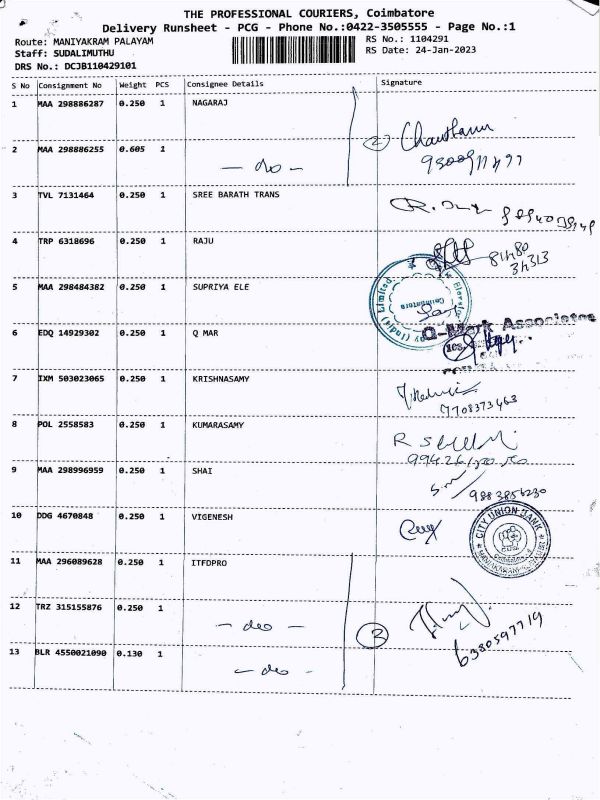 THE PROFESSIONAL COURIERS, Coimbatore
Delivery Runsheet - PCG - Phone No.:0422-3505555 - Page No.:1
Route: MANIYAKRAM PALAYAM
Staff: SUDALIMUTHU
DRS No.: DCJB110429101
RS No.: 1104291
RS Date: 24-Jan-2023
S No Consignment No Weight PCS Consignee Details Signature
1 MAA 298886287 0.250 1 NAGARAJ
2 MAA 298886255 0.605 1 - do - 2
3 TVL 7131464 0.250 1 SREE BARATH TRANS
4 TRP 6318696 0.250 1 RAJU
5 MAA 298484382 0.250 1 SUPRIYA ELE
Coimbatore
6 EDQ 14929302 0.250 1 Q MAR
Q-Mark Associates
7 IXM 503023065 0.250 1 KRISHNASAMY
7708373463
8 POL 2558583 0.250 1 KUMARASAMY
9 MAA 298996959 0.250 1 SHAI
9883856230
10 DDG 4670848 0.250 1 VIGENESH
CITY UNION BANK
11 MAA 296089628 0.250 1 ITFDPRO
12 TRZ 315155876 0.250 1 - do -
6380597719
13 BLR 4550021090 0.130 1 - do -